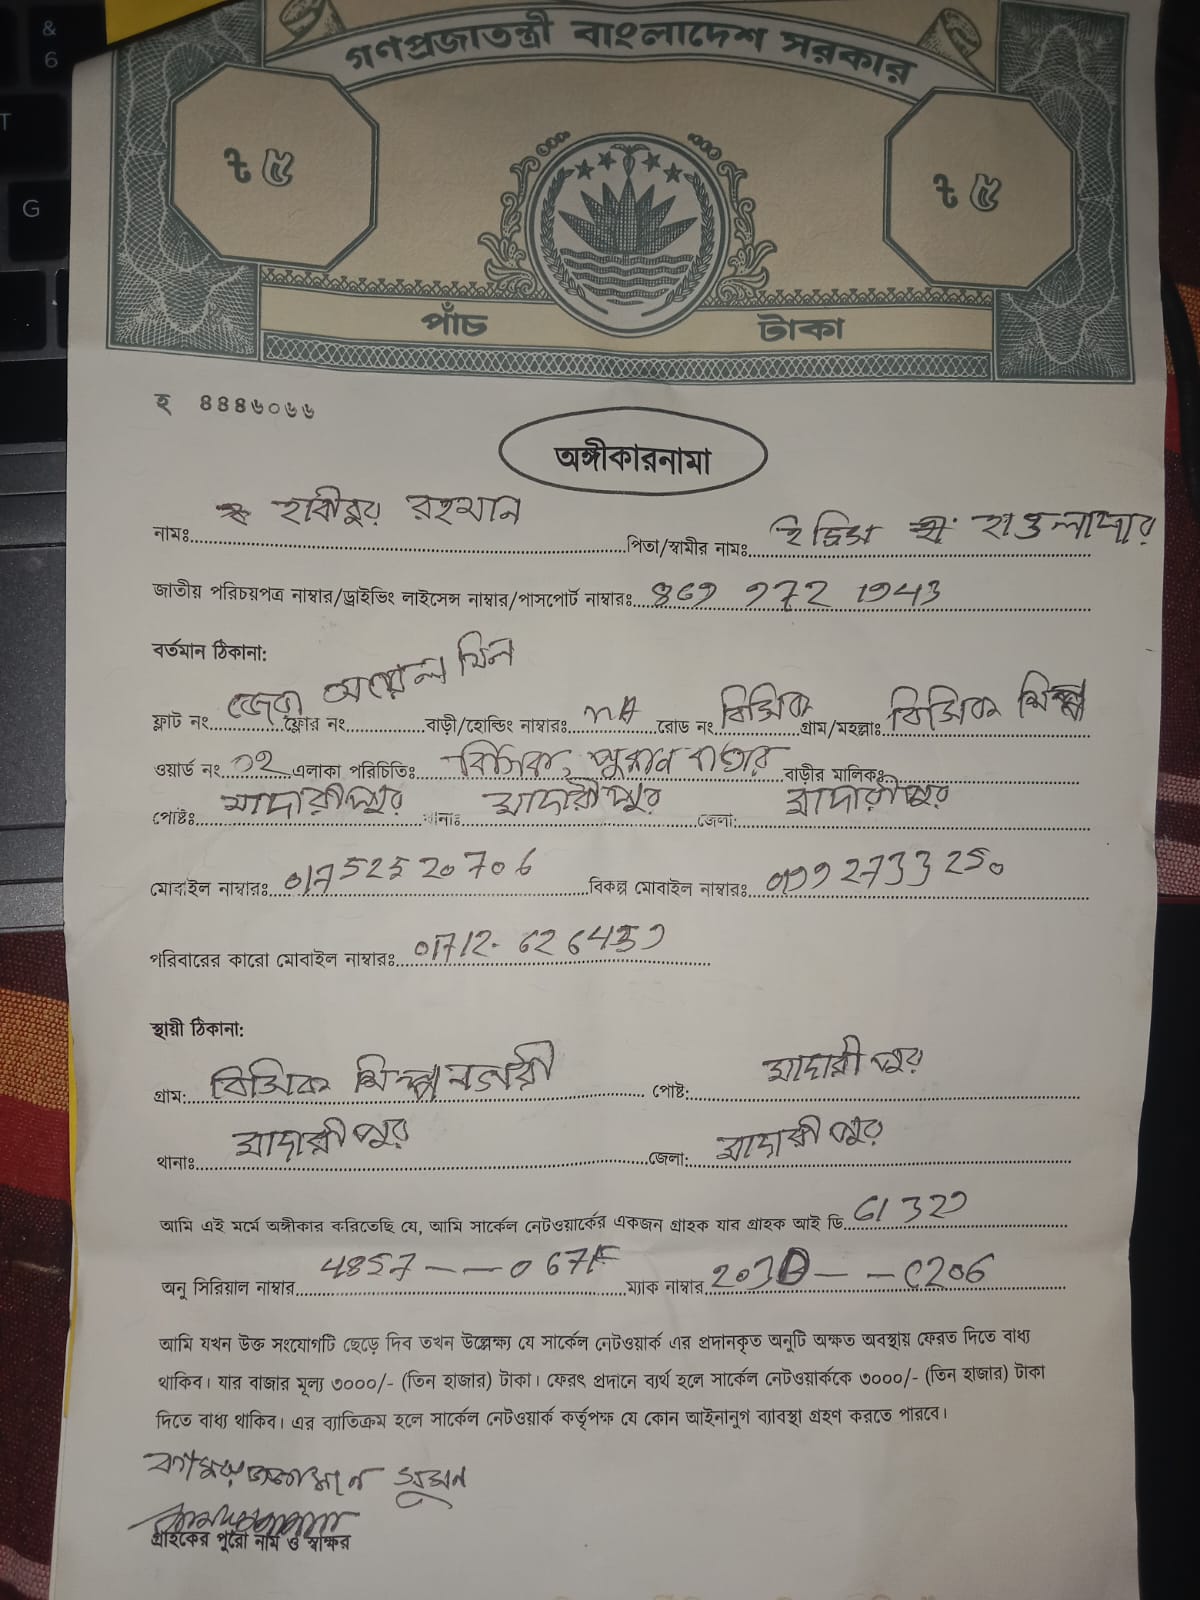 &
6
T
G
গণপ্রজাতন্ত্রী বাংলাদেশ সরকার
৳ ৫ ৳ ৫
পাঁচ টাকা
হ ৪৪৪৬০৬৬
অঙ্গীকারনামা
নামঃ হাবীবুর রহমান পিতা/স্বামীর নামঃ ইদ্রিস হাওলাদার
জাতীয় পরিচয়পত্র নাম্বার/ড্রাইভিং লাইসেন্স নাম্বার/পাসপোর্ট নাম্বারঃ 869 972 1943
বর্তমান ঠিকানা:
ফ্লাট নং অয়েল মিল ফ্লোর নং বাড়ী/হোল্ডিং নাম্বারঃ NA রোড নং বিসিক গ্রাম/মহল্লাঃ বিসিক শিল্প
ওয়ার্ড নং ০২ এলাকা পরিচিতিঃ বিসিক, পুরান বাজার বাড়ীর মালিকঃ
পোষ্টঃ মাদারীপুর থানাঃ মাদারীপুর জেলা: মাদারীপুর
মোবাইল নাম্বারঃ 01752520706 বিকল্প মোবাইল নাম্বারঃ 01992733250
পরিবারের কারো মোবাইল নাম্বারঃ 01712-626459
স্থায়ী ঠিকানা:
গ্রাম: বিসিক শিল্প নগরী পোষ্ট: মাদারীপুর
থানাঃ মাদারীপুর জেলা: মাদারীপুর
আমি এই মর্মে অঙ্গীকার করিতেছি যে, আমি সার্কেল নেটওয়ার্কের একজন গ্রাহক যার গ্রাহক আই ডি 61329
অনু সিরিয়াল নাম্বার 4857 — — 0671F ম্যাক নাম্বার 203D — — C206
আমি যখন উক্ত সংযোগটি ছেড়ে দিব তখন উল্লেক্ষ্য যে সার্কেল নেটওয়ার্ক এর প্রদানকৃত অনুটি অক্ষত অবস্থায় ফেরত দিতে বাধ্য
থাকিব। যার বাজার মূল্য ৩০০০/- (তিন হাজার) টাকা। ফেরৎ প্রদানে ব্যর্থ হলে সার্কেল নেটওয়ার্ককে ৩০০০/- (তিন হাজার) টাকা
দিতে বাধ্য থাকিব। এর ব্যাতিক্রম হলে সার্কেল নেটওয়ার্ক কর্তৃপক্ষ যে কোন আইনানুগ ব্যাবস্থা গ্রহণ করতে পারবে।
কামরুজ্জামান সুমন
গ্রাহকের পুরো নাম ও স্বাক্ষর